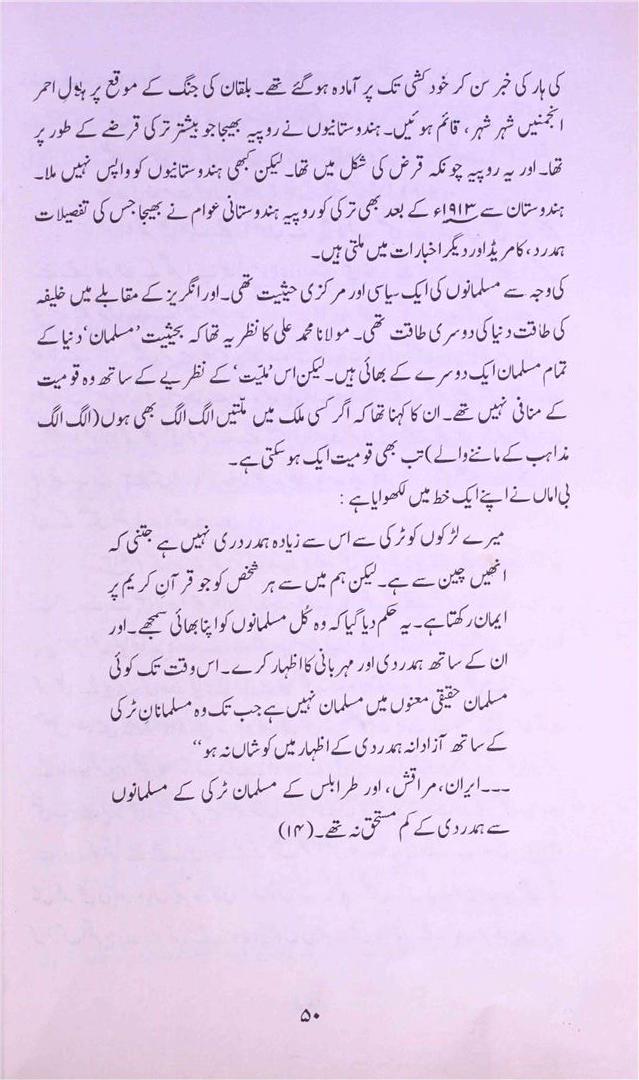 کی ہار کی خبر سن کر خود کشی تک پر آمادہ ہو گئے تھے۔ بلقان کی جنگ کے موقع پر ہلالِ احمر
انجمنیں شہر شہر، قائم ہوئیں۔ ہندوستانیوں نے روپیہ بھیجا جو بیشتر ترکی قرضے کے طور پر
تھا۔ اور یہ روپیہ چونکہ قرض کی شکل میں تھا۔ لیکن کبھی ہندوستانیوں کو واپس نہیں ملا۔
ہندوستان سے ۱۹۱۳ء کے بعد بھی ترکی کو روپیہ ہندوستانی عوام نے بھیجا جس کی تفصیلات
ہمدرد، کامریڈ اور دیگر اخبارات میں ملتی ہیں۔
کی وجہ سے مسلمانوں کی ایک سیاسی اور مرکزی حیثیت تھی۔ اور انگریز کے مقابلے میں خلیفہ
کی طاقت دنیا کی دوسری طاقت تھی۔ مولانا محمد علی کا نظریہ تھا کہ بحیثیت ’مسلمان‘ دنیا کے
تمام مسلمان ایک دوسرے کے بھائی ہیں۔ لیکن اس ’ملیّت‘ کے نظریے کے ساتھ وہ قومیت
کے منافی نہیں تھے۔ ان کا کہنا تھا کہ اگر کسی ملک میں ملّتیں الگ الگ بھی ہوں (الگ الگ
مذاہب کے ماننے والے) تب بھی قومیت ایک ہو سکتی ہے۔
بی اماں نے اپنے ایک خط میں لکھوایا ہے :
میرے لڑکوں کو ٹرکی سے اس سے زیادہ ہمدردی نہیں ہے جتنی کہ
انھیں چین سے ہے۔ لیکن ہم میں سے ہر شخص کو جو قرآن کریم پر
ایمان رکھتا ہے۔ یہ حکم دیا گیا کہ وہ کُل مسلمانوں کو اپنا بھائی سمجھے۔ اور
ان کے ساتھ ہمدردی اور مہربانی کا اظہار کرے۔ اس وقت تک کوئی
مسلمان حقیقی معنوں میں مسلمان نہیں ہے جب تک وہ مسلمانانِ ٹرکی
کے ساتھ آزادانہ ہمدردی کے اظہار میں کوشاں نہ ہو‘‘
۔۔۔ ایران، مراقش، اور طرابلس کے مسلمان ٹرکی کے مسلمانوں
سے ہمدردی کے کم مستحق نہ تھے۔ (۱۴)
۵۰